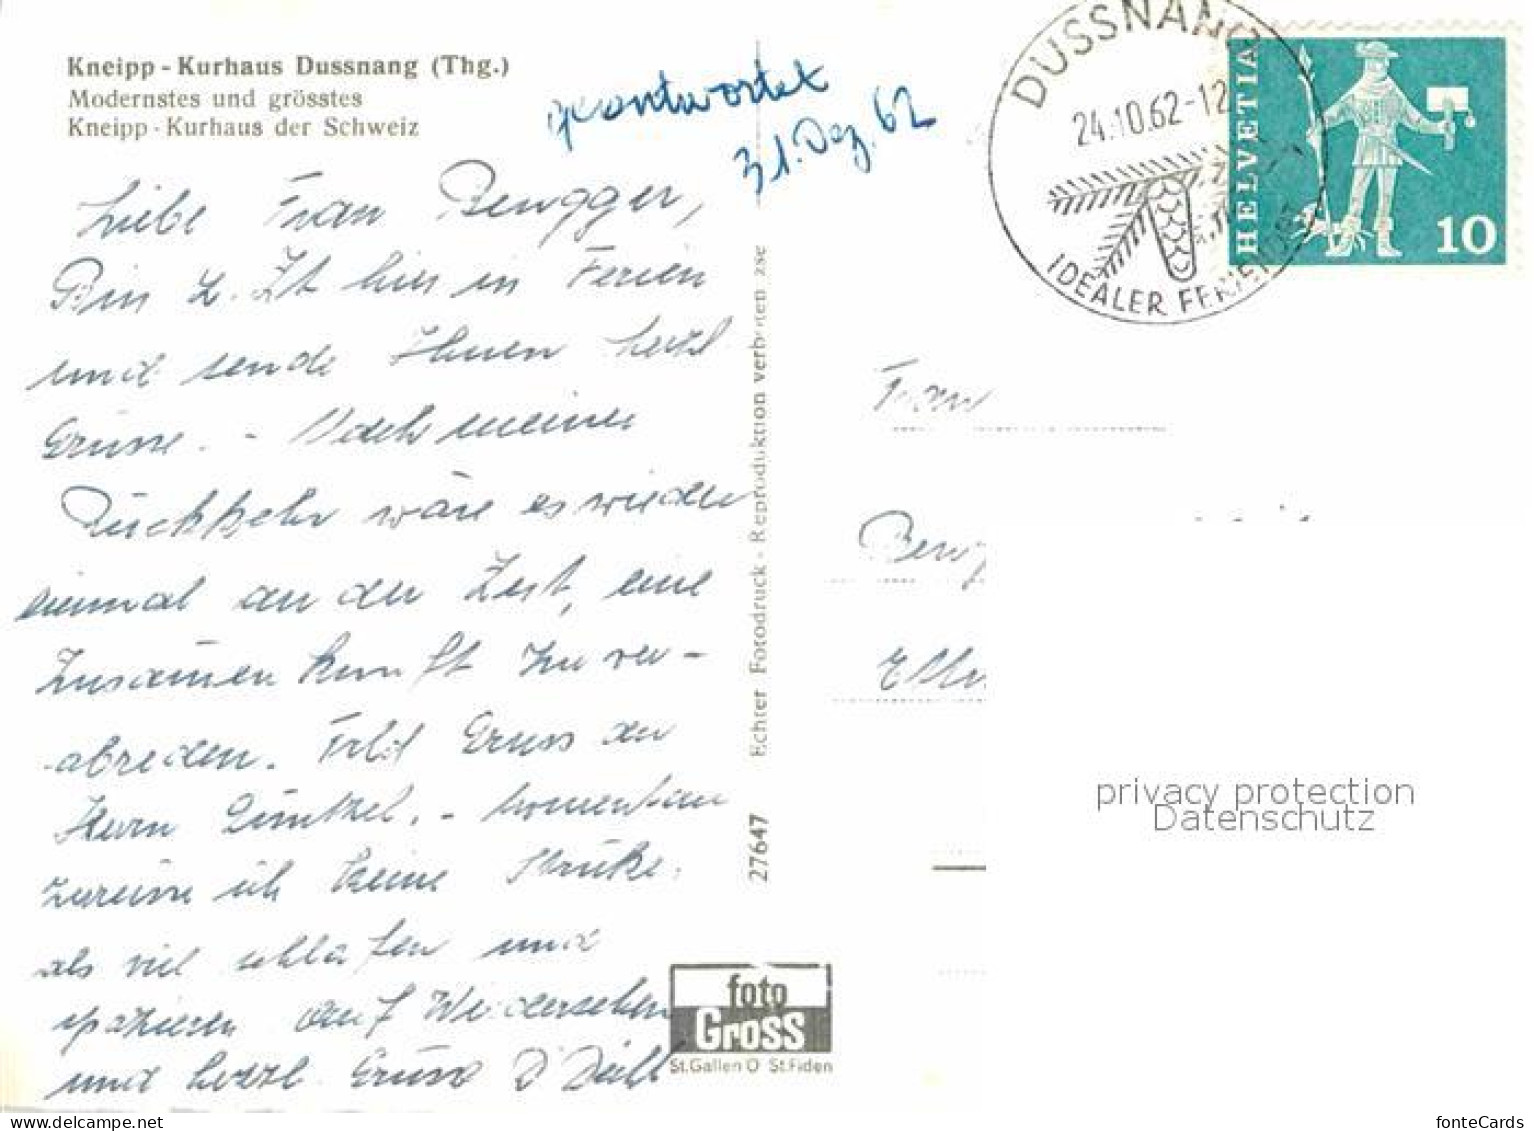 Kneipp - Kurhaus Dussnang (Thg.)
Modernstes und grösstes
Kneipp - Kurhaus der Schweiz
geantwortet
31. Dez. 62
DUSSNANG
24.10.62-12
IDEALER FERIEN
HELVETIA
10
Liebe Frau Benggger,
Bin z. Zt hier in Ferien
und sende Ihnen herzl
Grüsse. - Nach meiner
Rückkehr wäre es wieder
einmal an der Zeit, eine
Zusamenkunft zu ver-
abreden. Frdl Gruss an
Herrn Künkel. - momentan
ich keine
als viel schlafen und
spazieren auf Wiedersehen
und herzl. Grüsse D
Echter Fotodruck - Reproduktion verboten zse
27647
foto
Gross
St.Gallen O St.Fiden
Frau
privacy protection
Datenschutz
www.delcampe.net
fonteCards